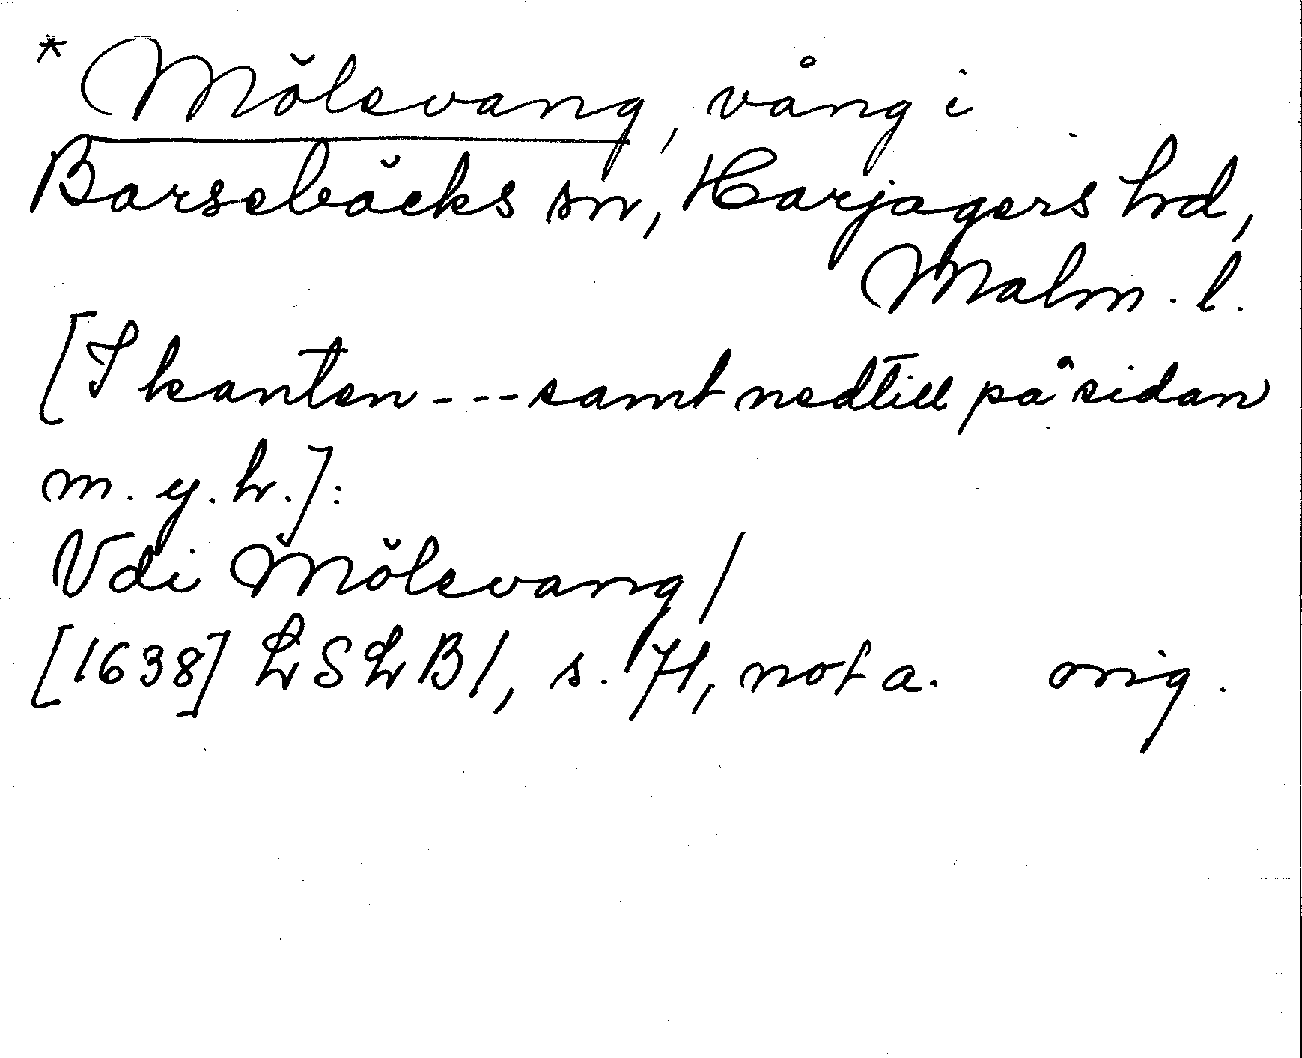 * Mölevang, vång i
Barsebäcks sn, Harjagers hd,
Malm. l.
[I kanten --- samt nedtill på sidan
m. y. h.]:
Vdi Mölevang/
[1638] LSLB1, s. 71, not a. orig.